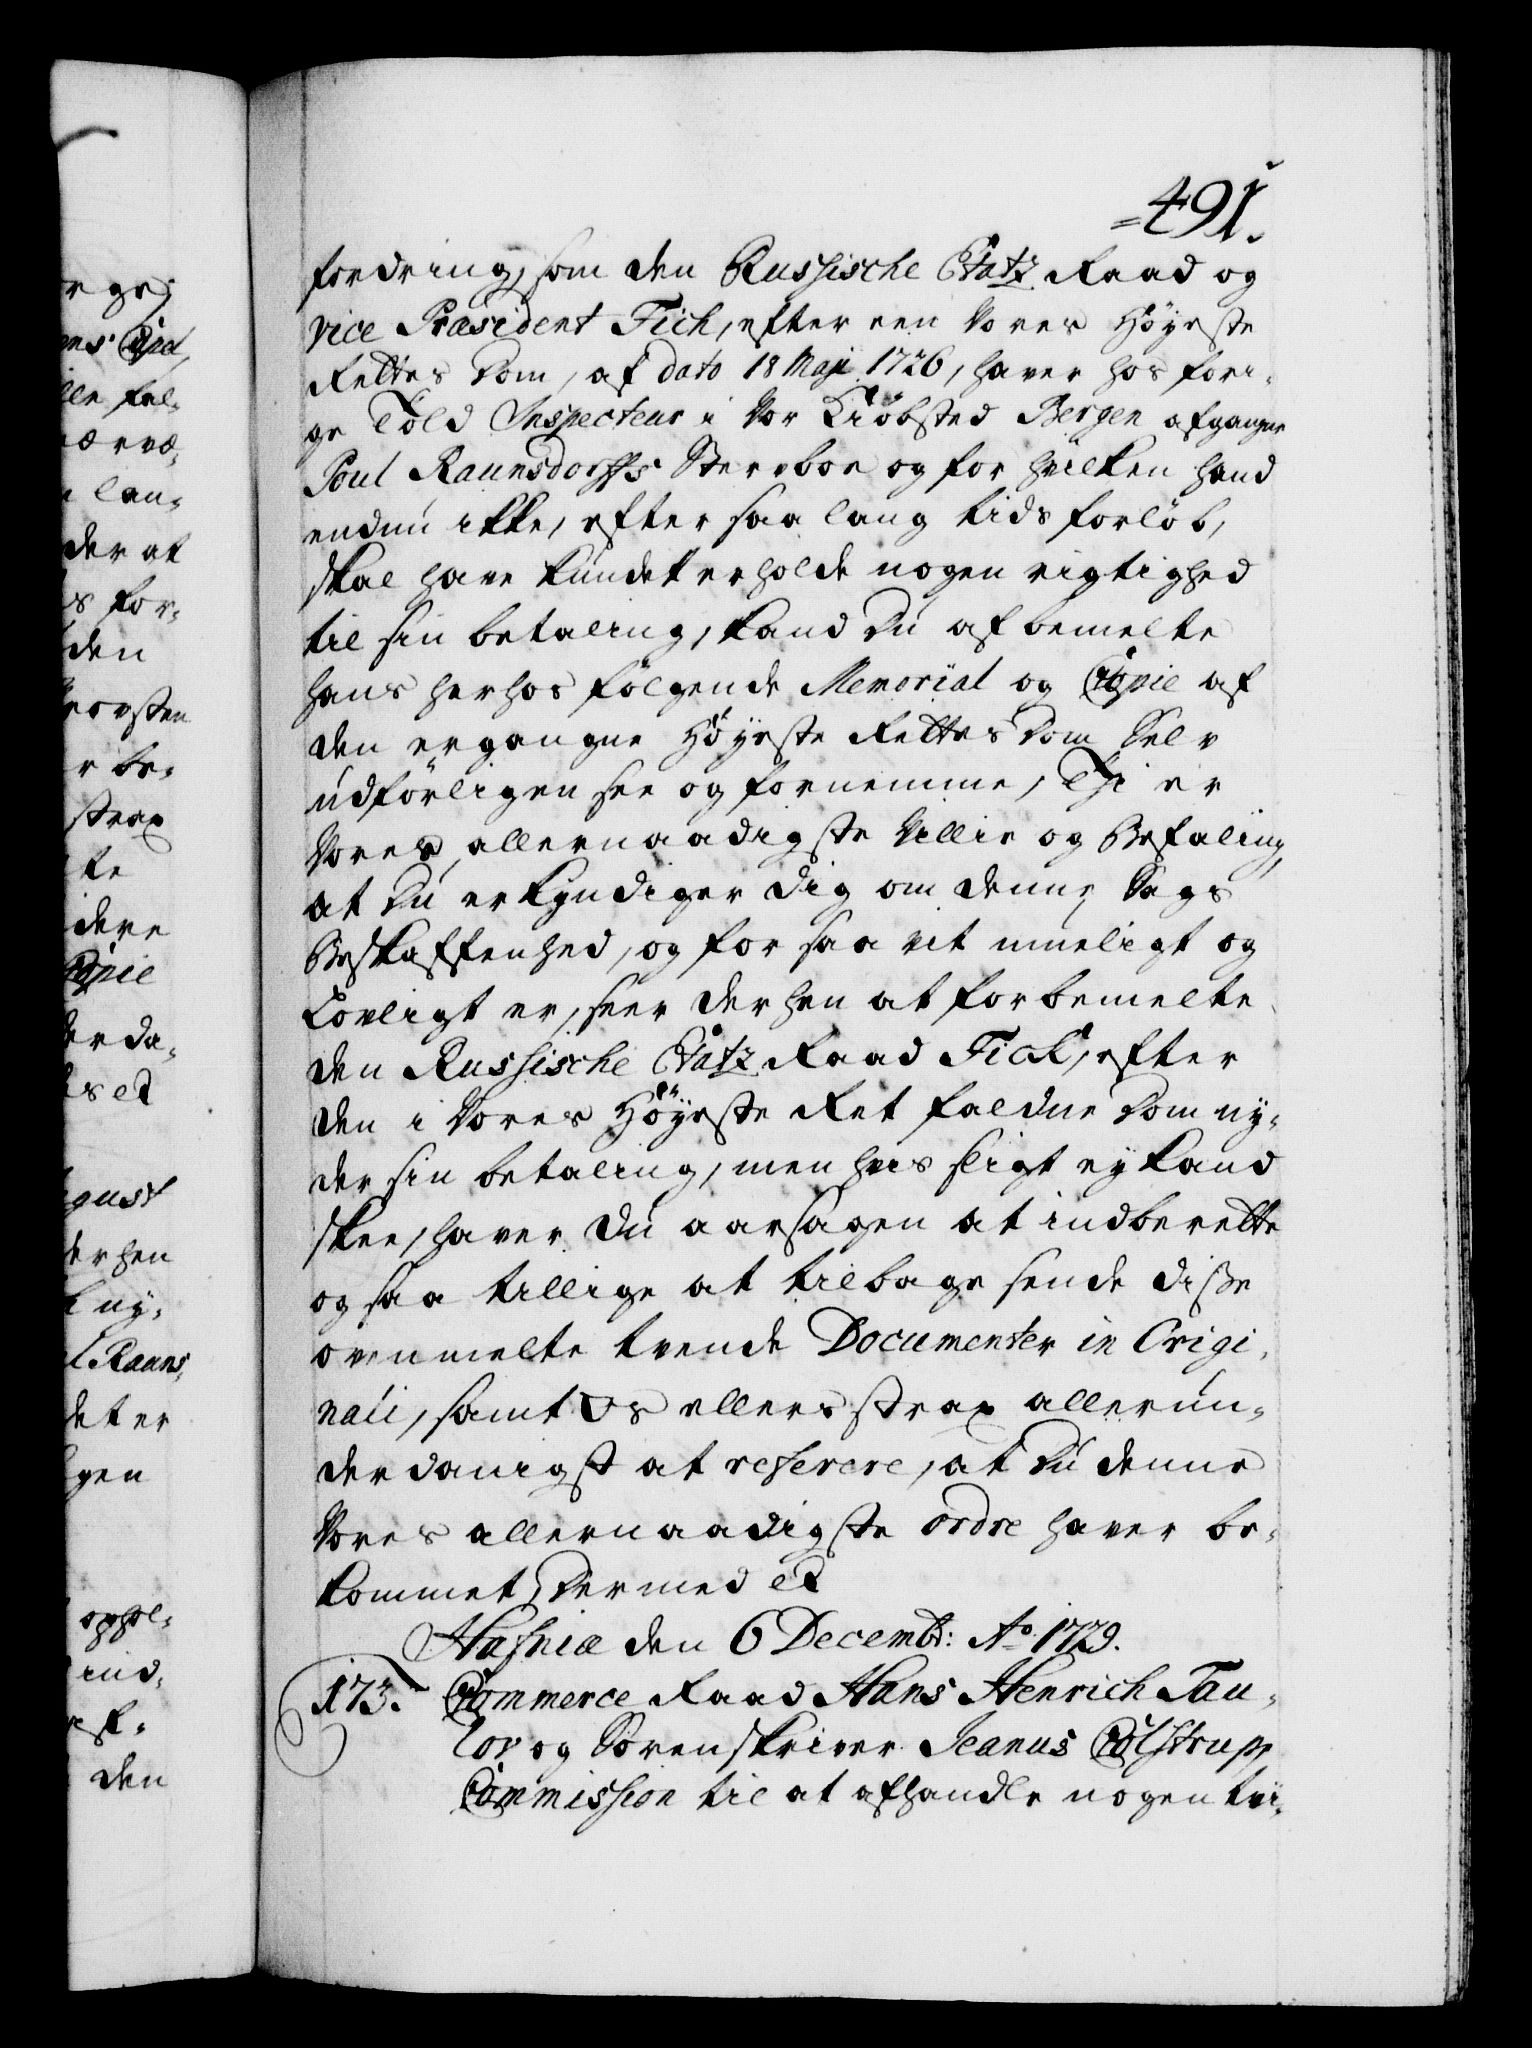 =491.
fordring, som den Russische Etatz Raad og
vice Præsident Fich, efter een Vores Höyeste
Rettes Dom, af dato 18 Maji 1726, haver hos fori-
ge Told Inspecteur i Vor Kiöbsted Bergen afgangne
Poul Raunsdorffs Sterboe og for hvilken hand
endnu ikke, efter saa lang tids forlöb,
skal have kundet erholde nogen rigtighed
til sin betaling, kand Du af bemelte
hans herhos fölgende Memorial og Copie af
den ergangne Höyeste Rettes Dom Selv
udförligen see og fornemme, Thi er
Vores allernaadigste Villie og Befaling,
at Du erkyndiger dig om denne Sags
Beskaffenhed, og for saa vit mueligt og
Lovligt er, seer derhen at forbemelte
den Russische Etatz Raad Fick, efter
den i Vores Höyeste Ret faldne Dom ny-
der sin betaling, men hvis sligt ey kand
skee, haver Du aarsagen at indberette
og saa tillige at tilbage sende disse
ovenmelte tvende Documenter in Origi-
nali, samt Os ellers strax allerun-
derdanigst at referere, at Du denne
Vores allernaadigste ordre haver be-
kommet, Dermed etc
Hafniæ den 6 Decembr: Ao 1729.
173. Commerce Raad Hans Henrich Tau-
lov og Sorenskriver Jeanus Colstrupp
Commission til at afhandle nogen tvi-
er gr
ens Copel
ille fal-
ærvæ-
lan-
der at
s for-
den
rorsten
r be-
strax
te
dere
Copie
erda-
s etc
gust
derhen
t ny-
l Rauns-
det er
gen
ophol-
ind-
ef-
den